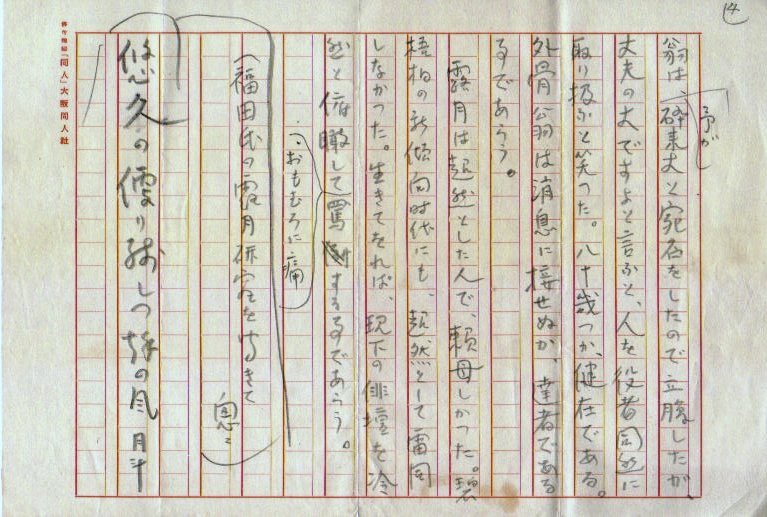 14
翁は、予がし
碎表丈と宛名をしたので立腹したが、
丈夫の丈ですよと言ふと、人を役者同然に
取り扱ふと笑つた。八十歳つか、健在である。
外骨翁は消息に接せぬが、達者である
るであらう。
露月は超然とした人で、頼母しかつた。碧
梧桐の新傾向時代にも、超然として雷同
しなかつた。生きてをれば、現下の俳壇を冷
然と俯瞰して罵倒するであらう。
おもむろに痛
(福田氏の露月研究をきて
悠久の
旅の風 月斗
俳句雑誌「同人」大阪同人社